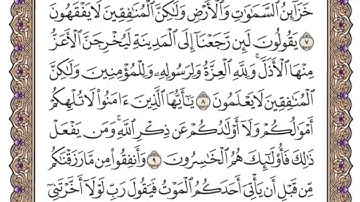 خَزَآئِنُ ٱلسَّمَٰوَٰتِ وَٱلْأَرْضِ وَلَٰكِنَّ ٱلْمُنَٰفِقِينَ لَا يَفْقَهُونَ
٧ يَقُولُونَ لَئِن رَّجَعْنَآ إِلَى ٱلْمَدِينَةِ لَيُخْرِجَنَّ ٱلْأَعَزُّ
مِنْهَا ٱلْأَذَلَّ ۚ وَلِلَّهِ ٱلْعِزَّةُ وَلِرَسُولِهِۦ وَلِلْمُؤْمِنِينَ وَلَٰكِنَّ
ٱلْمُنَٰفِقِينَ لَا يَعْلَمُونَ ٨ يَٰٓأَيُّهَا ٱلَّذِينَ ءَامَنُوا۟ لَا تُلْهِكُمْ
أَمْوَٰلُكُمْ وَلَآ أَوْلَٰدُكُمْ عَن ذِكْرِ ٱللَّهِ ۚ وَمَن يَفْعَلْ
ذَٰلِكَ فَأُو۟لَٰٓئِكَ هُمُ ٱلْخَٰسِرُونَ ٩ وَأَنفِقُوا۟ مِن مَّا رَزَقْنَٰكُم
مِّن قَبْلِ أَن يَأْتِىَ أَحَدَكُمُ ٱلْمَوْتُ فَيَقُولَ رَبِّ لَوْلَآ أَخَّرْتَنِىٓ